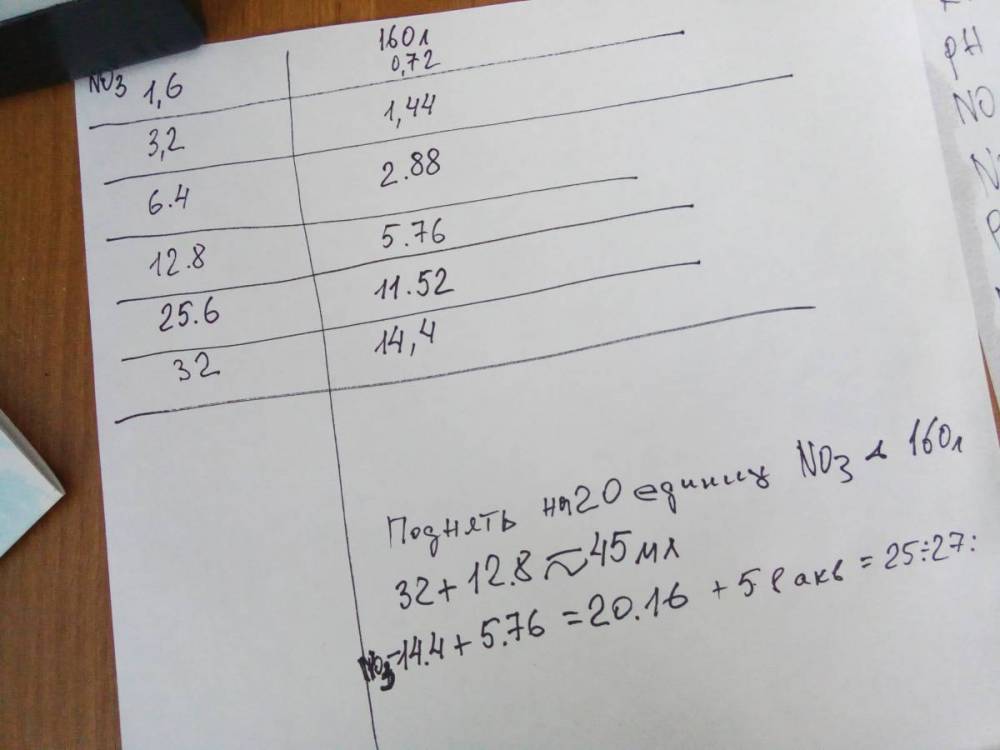 160л
NO3 1,6 0,72
3,2 1,44
6.4 2.88
12.8 5.76
25.6 11.52
32 14,4
Поднять на 20 единиц NO3 в 160л
32+12.8≈45мл
NO3-14.4+5.76=20.16 + 5 в акв = 25÷27:
pH
NO